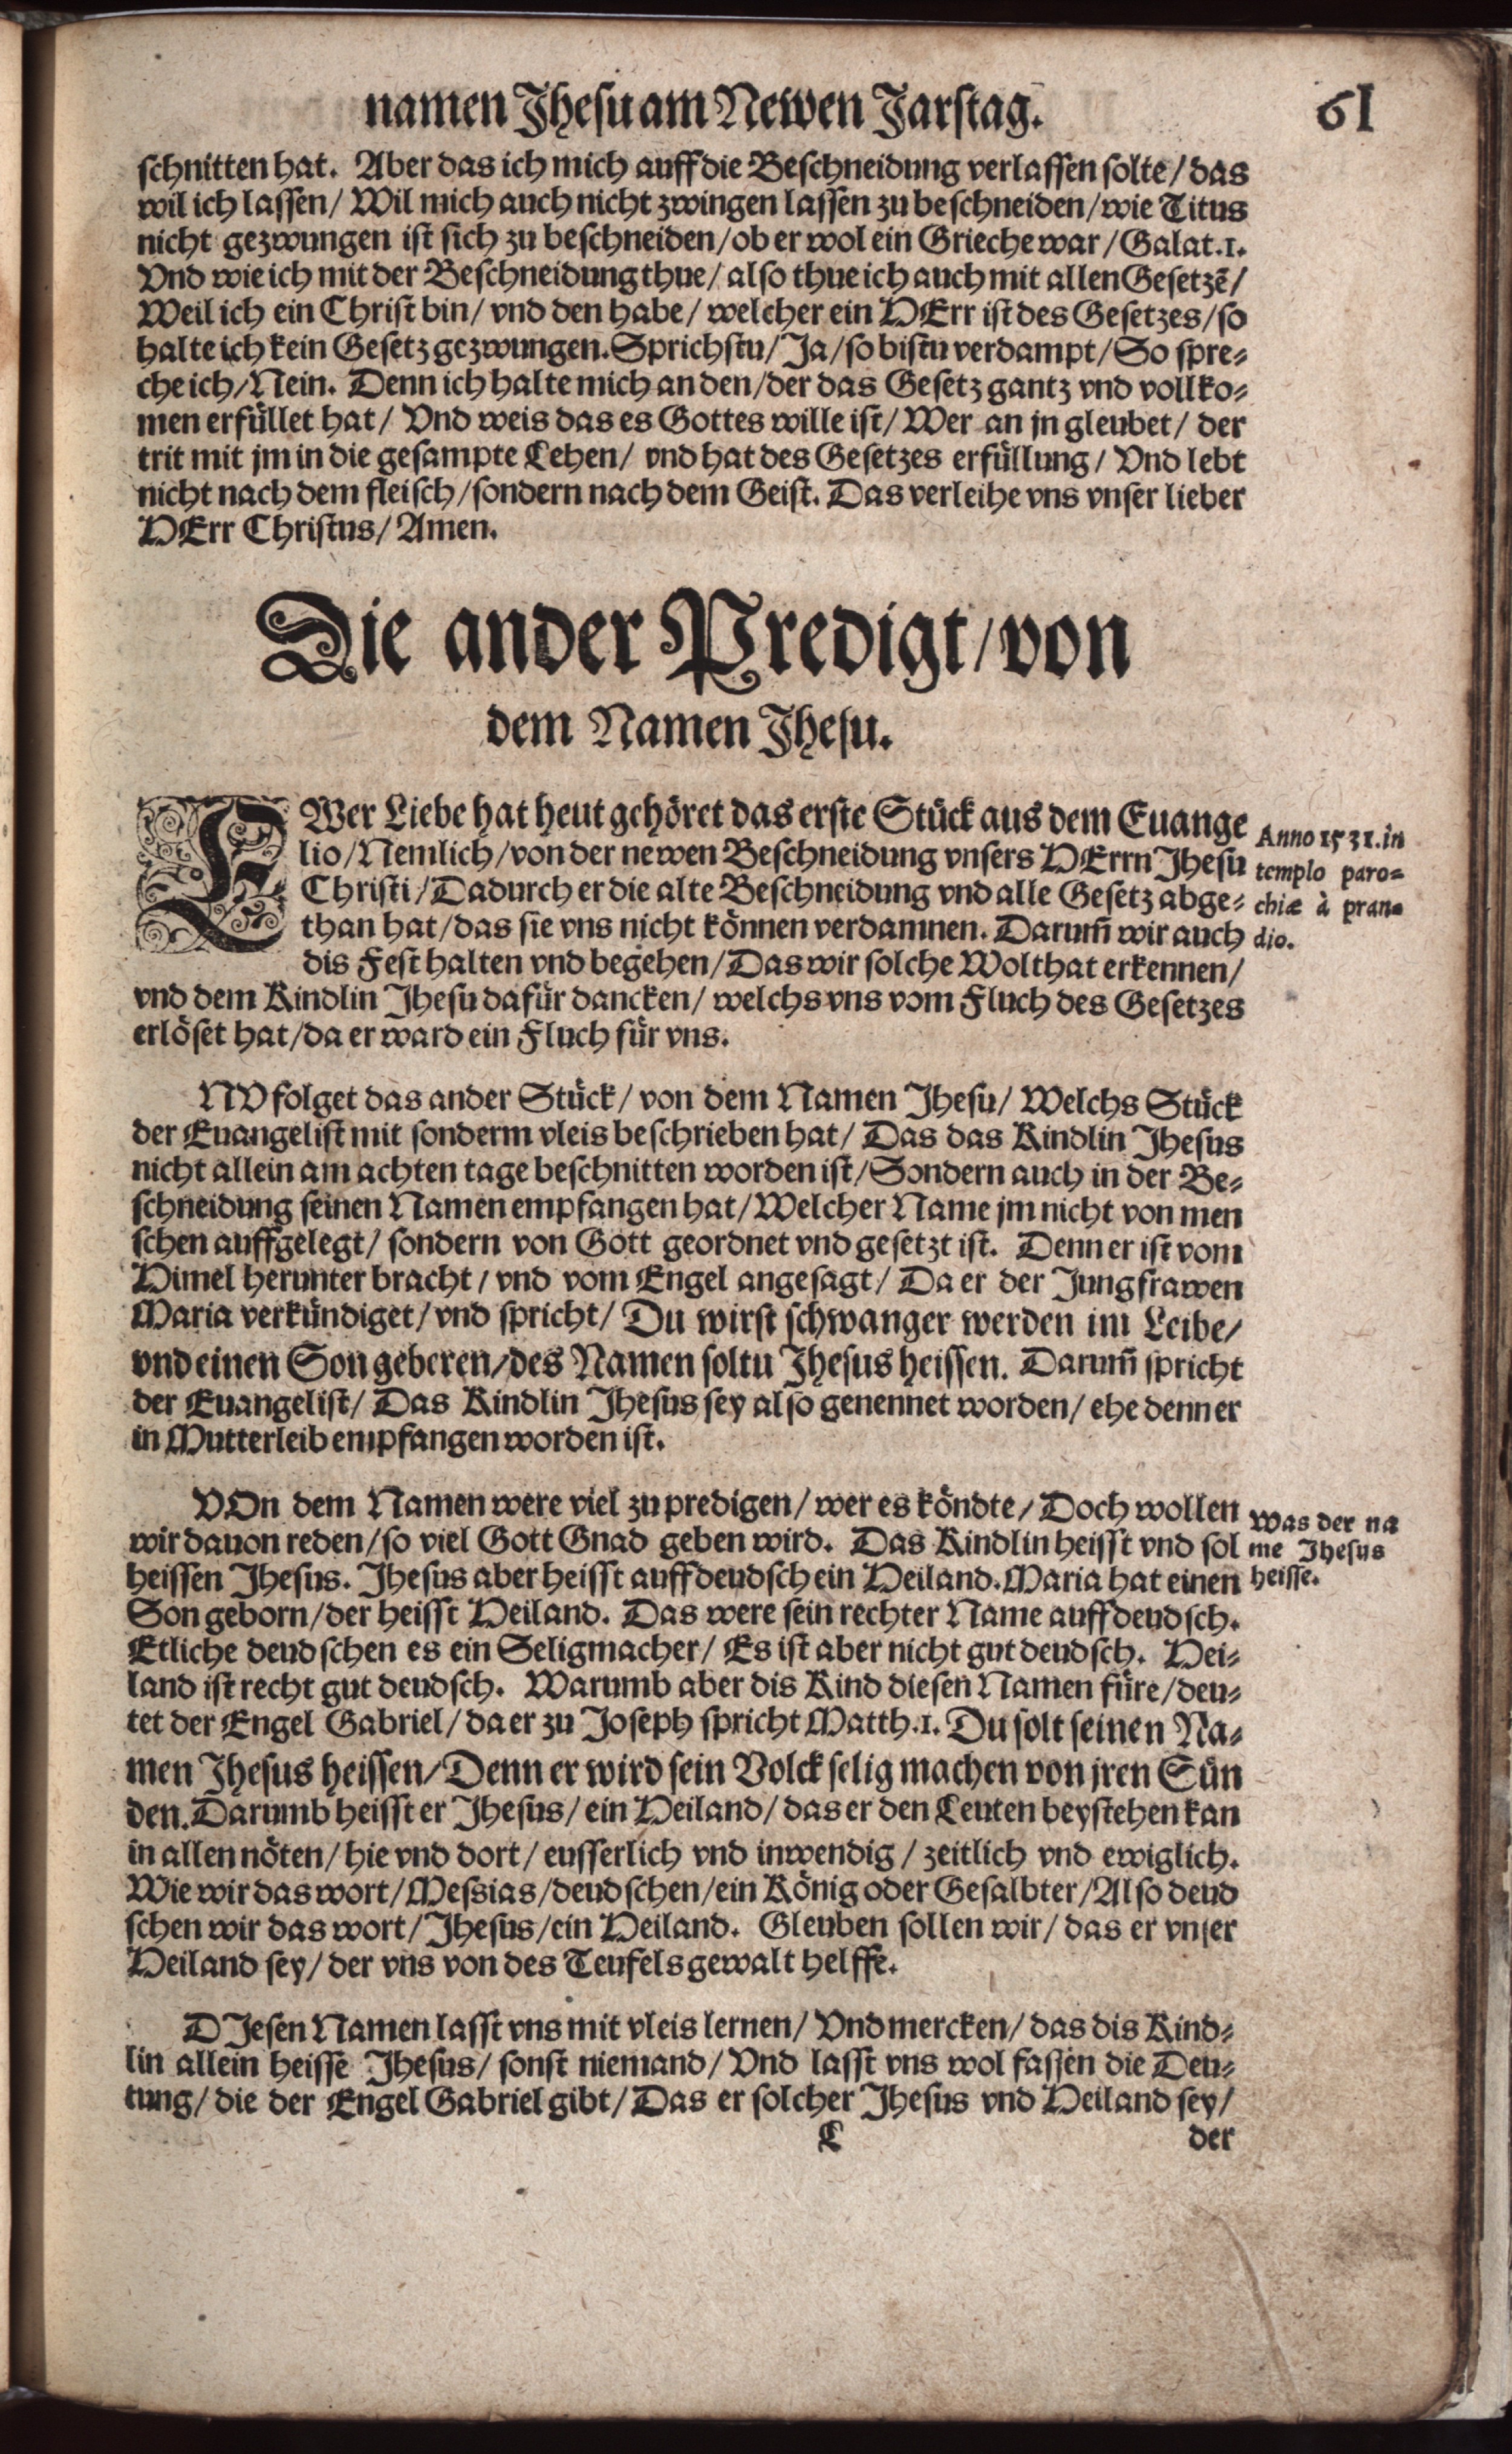 namen Jhesu am Newen Jarstag. 61
schnitten hat. Aber das ich mich auff die Beschneidung verlassen solte/ das
wil ich lassen/ Wil mich auch nicht zwingen lassen zu beschneiden/ wie Titus
nicht gezwungen ist sich zu beschneiden/ ob er wol ein Grieche war/ Galat.1.
Vnd wie ich mit der Beschneidung thue/ also thue ich auch mit allen Gesetzē/
Weil ich ein Christ bin/ vnd den habe/ welcher ein HErr ist des Gesetzes/ so
halte ich kein Gesetz gezwungen. Sprichstu/ Ja/ so bistu verdampt/ So spre-
che ich/ Nein. Denn ich halte mich an den/ der das Gesetz gantz vnd vollko-
men erfüllet hat/ Vnd weis das es Gottes wille ist/ Wer an jn gleubet/ der
trit mit jm in die gesampte Lehen/ vnd hat des Gesetzes erfüllung/ Vnd lebt
nicht nach dem fleisch/ sondern nach dem Geist. Das verleihe vns vnser lieber
HErr Christus/ Amen.
Die ander Predigt/ von
dem Namen Jhesu.
EWer Liebe hat heut gehöret das erste Stück aus dem Euange
lio/ Nemlich/ von der newen Beschneidung vnsers HErrn Jhesu
Christi/ Dadurch er die alte Beschneidung vnd alle Gesetz abge-
than hat/ das sie vns nicht können verdamnen. Darum̄ wir auch
dis Fest halten vnd begehen/ Das wir solche Wolthat erkennen/
vnd dem Kindlin Jhesu dafür dancken/ welchs vns vom Fluch des Gesetzes
erlöset hat/ da er ward ein Fluch für vns.
Anno 1531. in
templo paro-
chiæ à pran-
dio.
NV folget das ander Stück/ von dem Namen Jhesu/ Welchs Stück
der Euangelist mit sonderm vleis beschrieben hat/ Das das Kindlin Jhesus
nicht allein am achten tage beschnitten worden ist/ Sondern auch in der Be-
schneidung seinen Namen empfangen hat/ Welcher Name jm nicht von men
schen auffgelegt/ sondern von Gott geordnet vnd gesetzt ist. Denn er ist vom
Himel herunter bracht/ vnd vom Engel angesagt/ Da er der Jungfrawen
Maria verkündiget/ vnd spricht/ Du wirst schwanger werden im Leibe/
vnd einen Son geberen/ des Namen soltu Jhesus heissen. Darum̄ spricht
der Euangelist/ Das Kindlin Jhesus sey also genennet worden/ ehe denn er
in Mutterleib empfangen worden ist.
VOn dem Namen were viel zu predigen/ wer es köndte/ Doch wollen
wir dauon reden/ so viel Gott Gnad geben wird. Das Kindlin heisst vnd sol
heissen Jhesus. Jhesus aber heisst auff deudsch ein Heiland. Maria hat einen
Son geborn/ der heisst Heiland. Das were sein rechter Name auff deudsch.
Etliche deudschen es ein Seligmacher/ Es ist aber nicht gut deudsch. Hei-
land ist recht gut deudsch. Warumb aber dis Kind diesen Namen füre/ deu-
tet der Engel Gabriel/ da er zu Joseph spricht Matth.1. Du solt seinen Na-
men Jhesus heissen/ Denn er wird sein Volck selig machen von jren Sün
den. Darumb heisst er Jhesus/ ein Heiland/ das er den Leuten beystehen kan
in allen nöten/ hie vnd dort/ eusserlich vnd inwendig/ zeitlich vnd ewiglich.
Wie wir das wort/ Messias/ deudschen/ ein König oder Gesalbter/ Also deud
schen wir das wort/ Jhesus/ ein Heiland. Gleuben sollen wir/ das er vnser
Heiland sey/ der vns von des Teufels gewalt helffe.
Was der na
me Jhesus
heisse.
DJesen Namen lasst vns mit vleis lernen/ Vnd mercken/ das dis Kind-
lin allein heisse Jhesus/ sonst niemand/ Vnd lasst vns wol fassen die Deu-
tung/ die der Engel Gabriel gibt/ Das er solcher Jhesus vnd Heiland sey/
L der